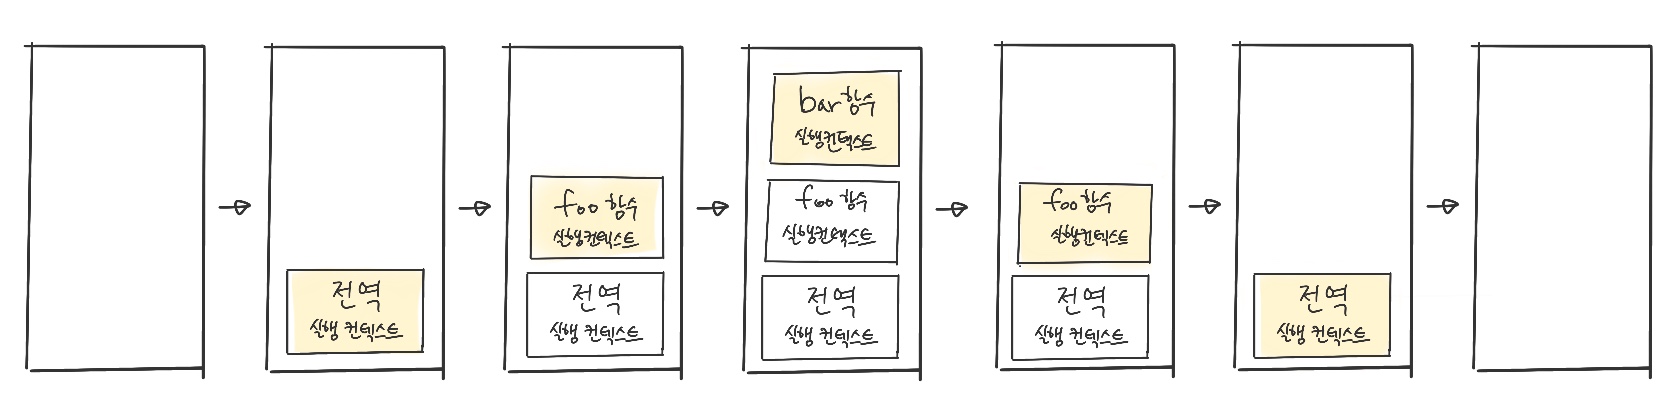 전역
실행 컨텍스트
foo 함수
실행컨텍스트
전역
실행 컨텍스트
bar 함수
실행컨텍스트
foo 함수
실행컨텍스트
전역
실행 컨텍스트
foo 함수
실행컨텍스트
전역
실행 컨텍스트
전역
실행 컨텍스트